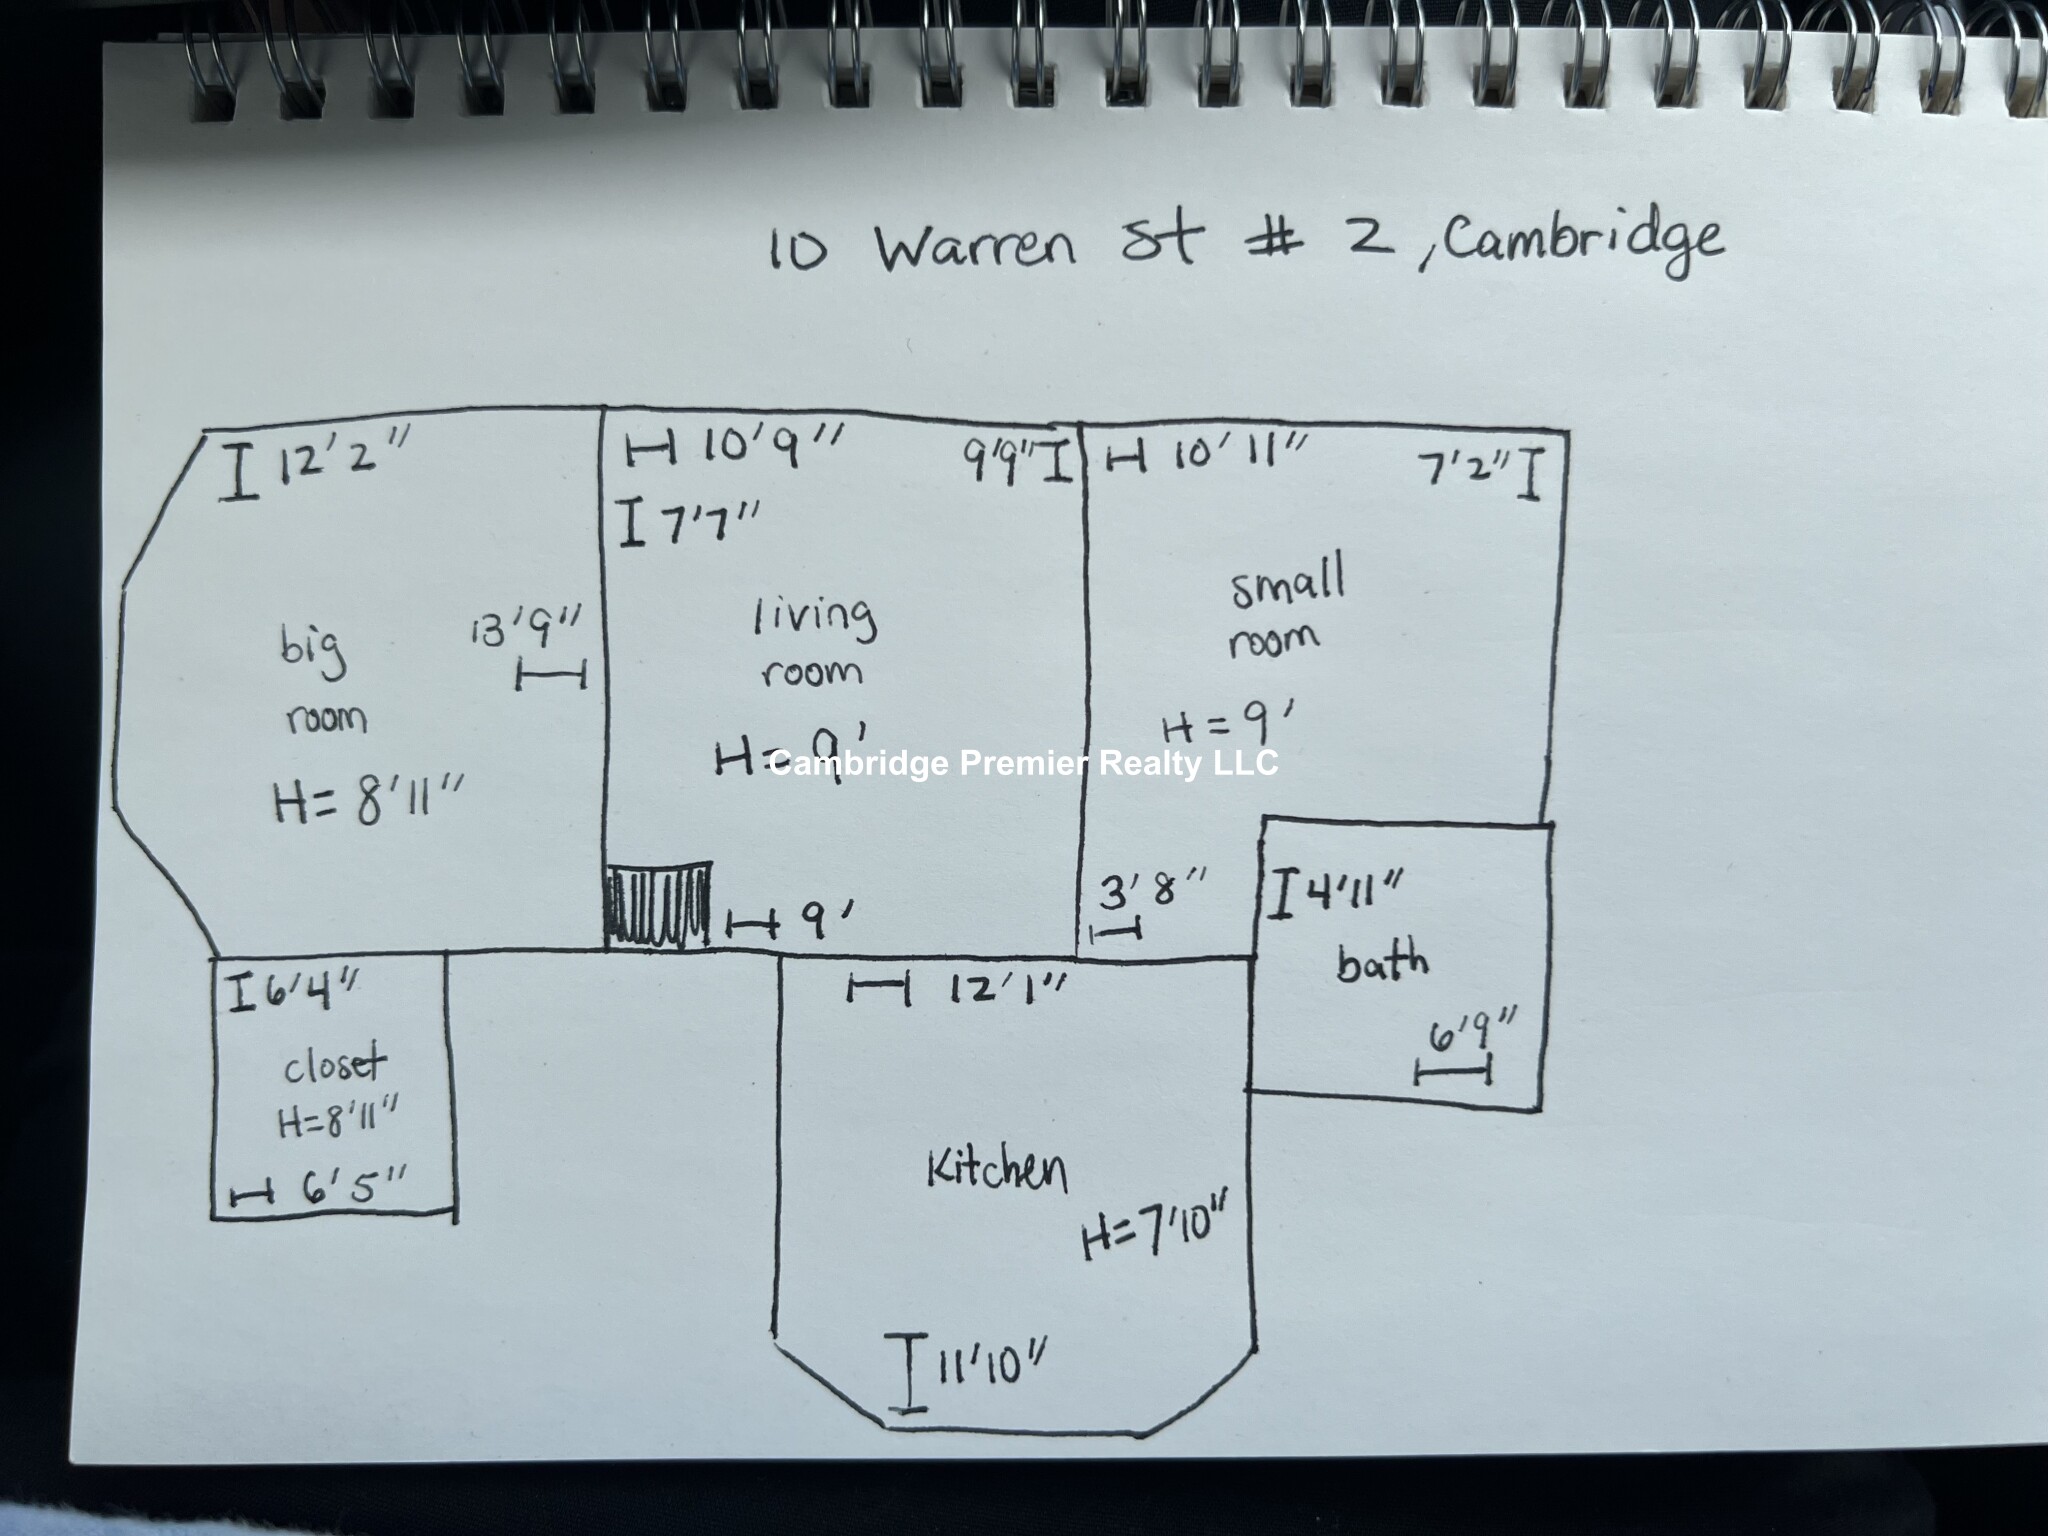 10 Warren St # 2, Cambridge
12'2"
10'9"
9'9"
10'11"
7'2"
7'7"
13'9"
big
room
H=8'11"
living
room
H=9'
small
room
H=9'
Cambridge Premier Realty LLC
9'
3'8"
4'11"
bath
6'9"
6'4"
closet
H=8'11"
6'5"
12'1"
Kitchen
H=7'10"
11'10"